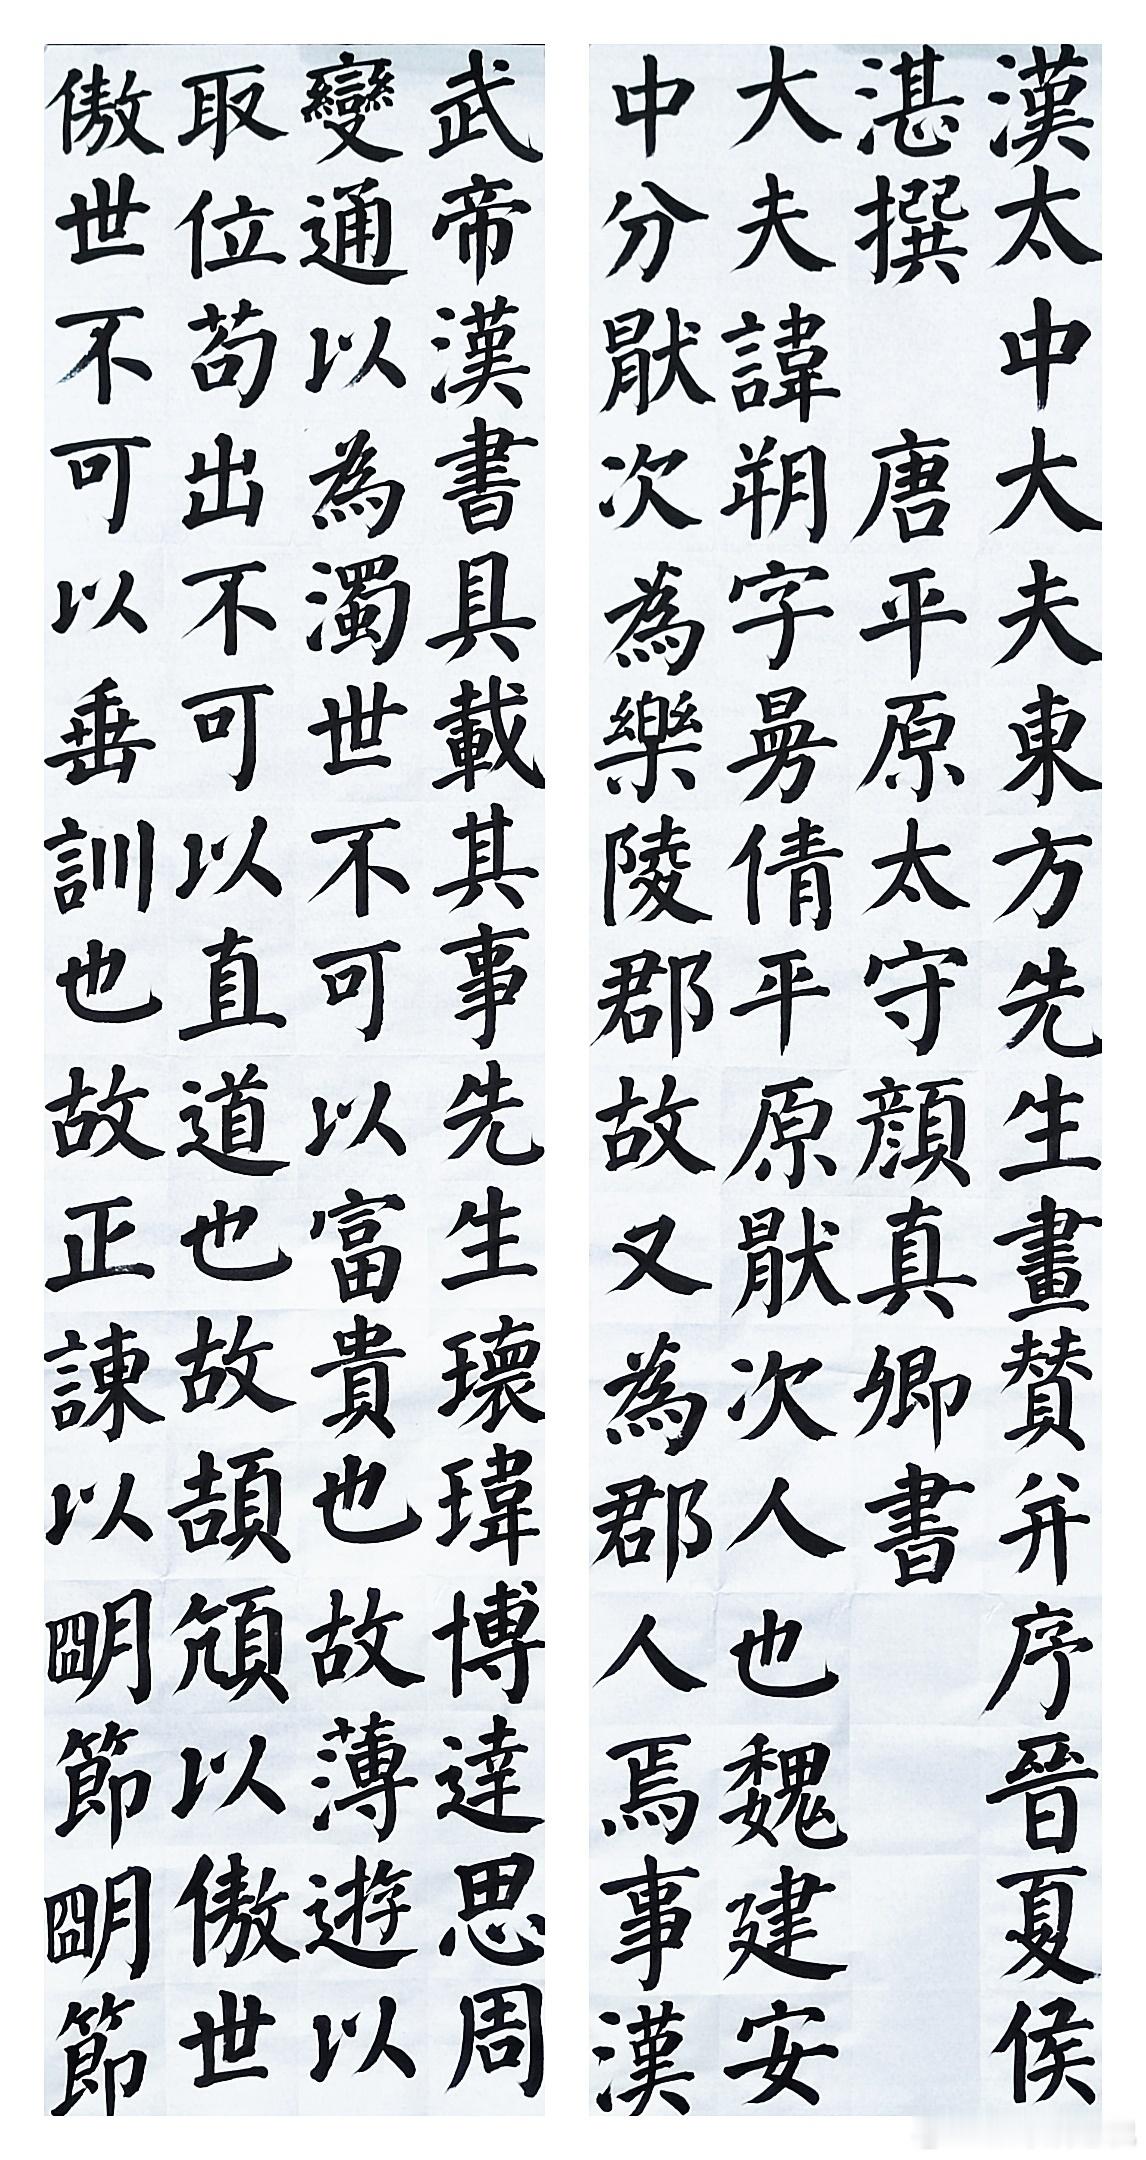 漢太中大夫東方先生畫賛并序晉夏侯
湛撰唐平原太守顔真卿書
大夫諱朔字曼倩平原猒次人也魏建安
中分猒次為樂陵郡故又為郡人焉事漢
武帝漢書具載其事先生瓌瑋博達思周
變通以為濁世不可以富貴也故薄遊以
取位苟出不可以直道也故頡頏以傲世
傲世不可以垂訓也故正諫以明節明節